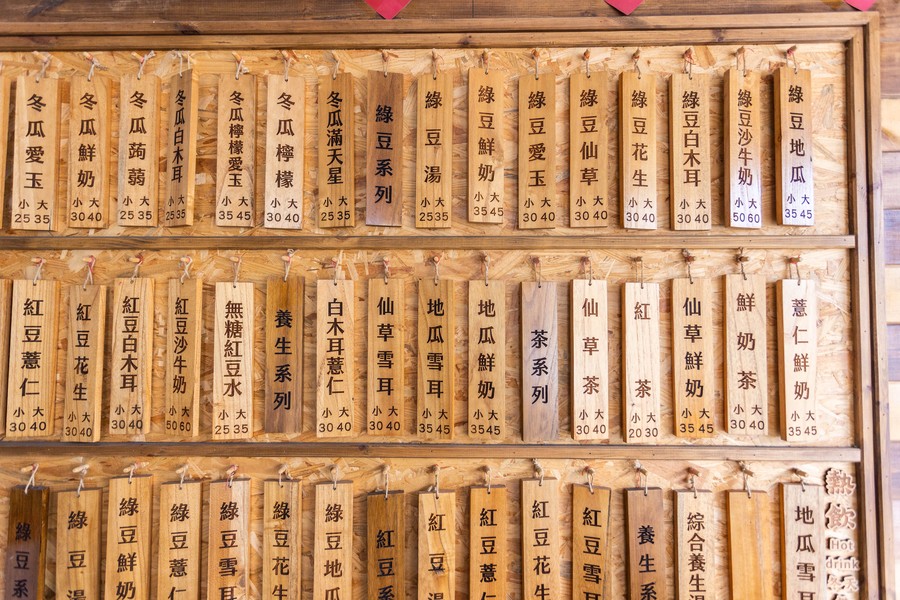 冬瓜愛玉 小25 大35
冬瓜鮮奶 小30 大40
冬瓜蒟蒻 小25 大35
冬瓜白木耳 小25 大35
冬瓜檸檬愛玉 小35 大45
冬瓜檸檬 小30 大40
冬瓜滿天星 小25 大35
綠豆系列
綠豆湯 小25 大35
綠豆鮮奶 小35 大45
綠豆愛玉 小30 大40
綠豆仙草 小30 大40
綠豆花生 小30 大40
綠豆白木耳 小30 大40
綠豆沙牛奶 小50 大60
綠豆地瓜 小35 大45
紅豆薏仁 小30 大40
紅豆花生 小30 大40
紅豆白木耳 小30 大40
紅豆沙牛奶 小50 大60
無糖紅豆水 小25 大35
養生系列
白木耳薏仁 小30 大40
仙草雪耳 小30 大40
地瓜雪耳 小35 大45
地瓜鮮奶 小35 大45
茶系列
仙草茶 小30 大40
紅茶 小20 大30
仙草鮮奶 小35 大45
鮮奶茶 小30 大40
薏仁鮮奶 小35 大45
綠豆系
綠豆湯
綠豆鮮奶
綠豆薏仁
綠豆雪耳
綠豆花生
綠豆地瓜
紅豆系
紅豆湯
紅豆薏仁
紅豆花生
紅豆雪耳
養生系
綜合養生湯
地瓜雪耳
熱飲
Hot
drink